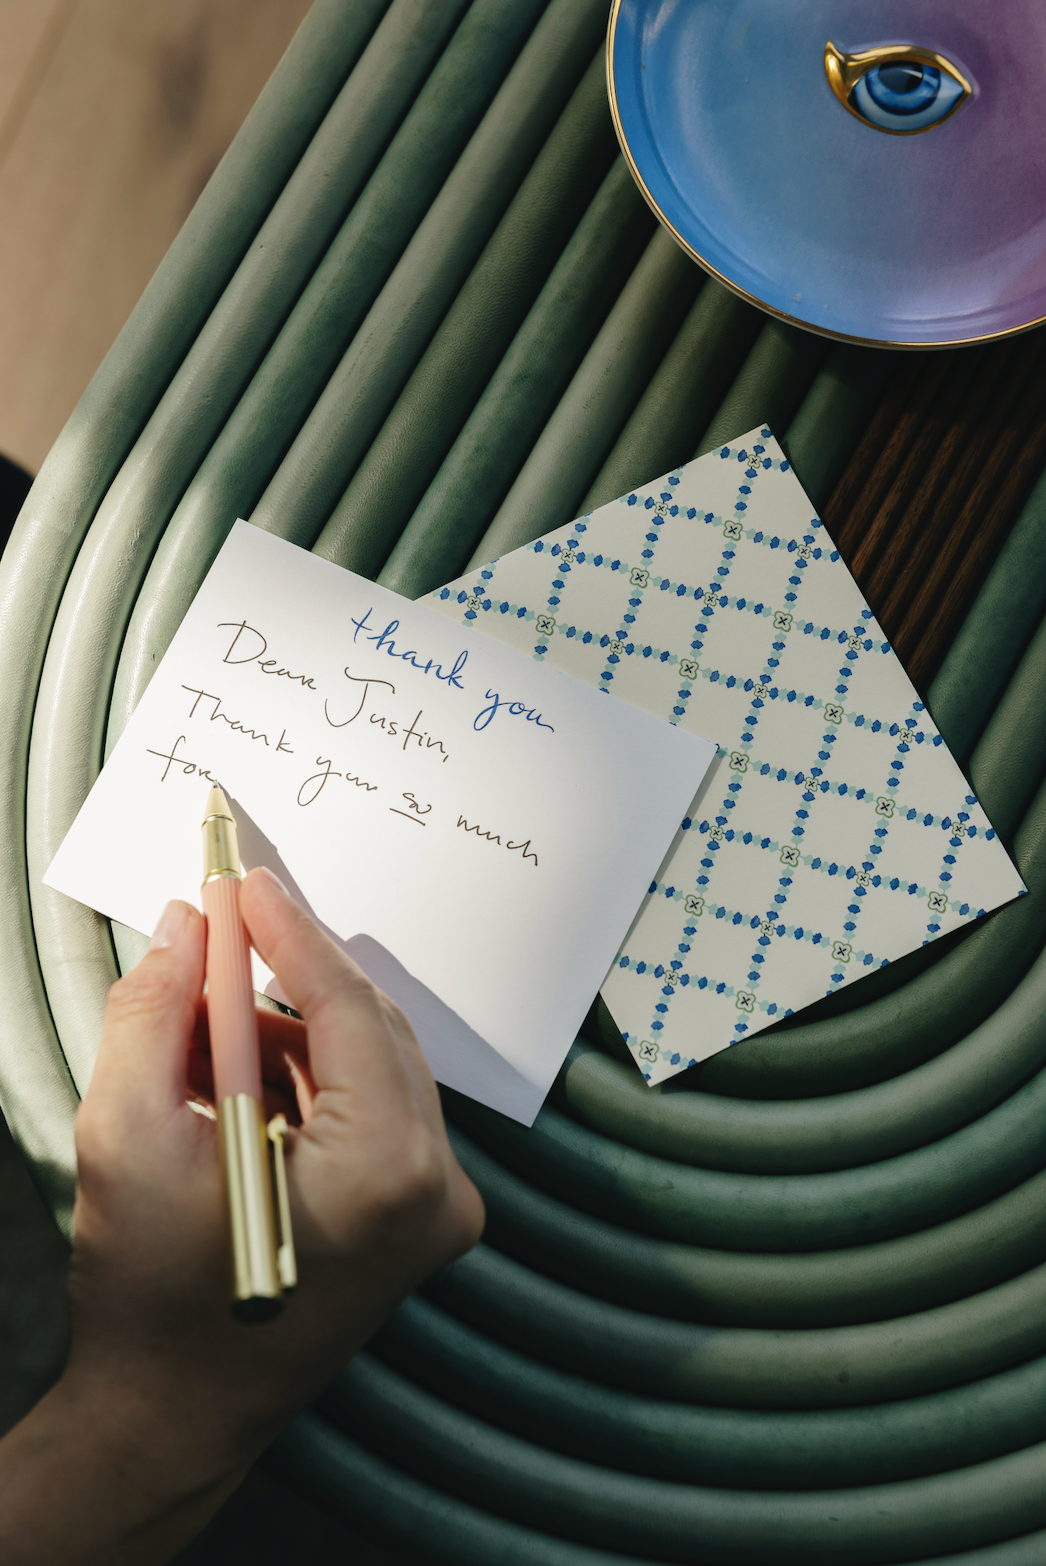 thank you
Dear Justin,
Thank you so much
for